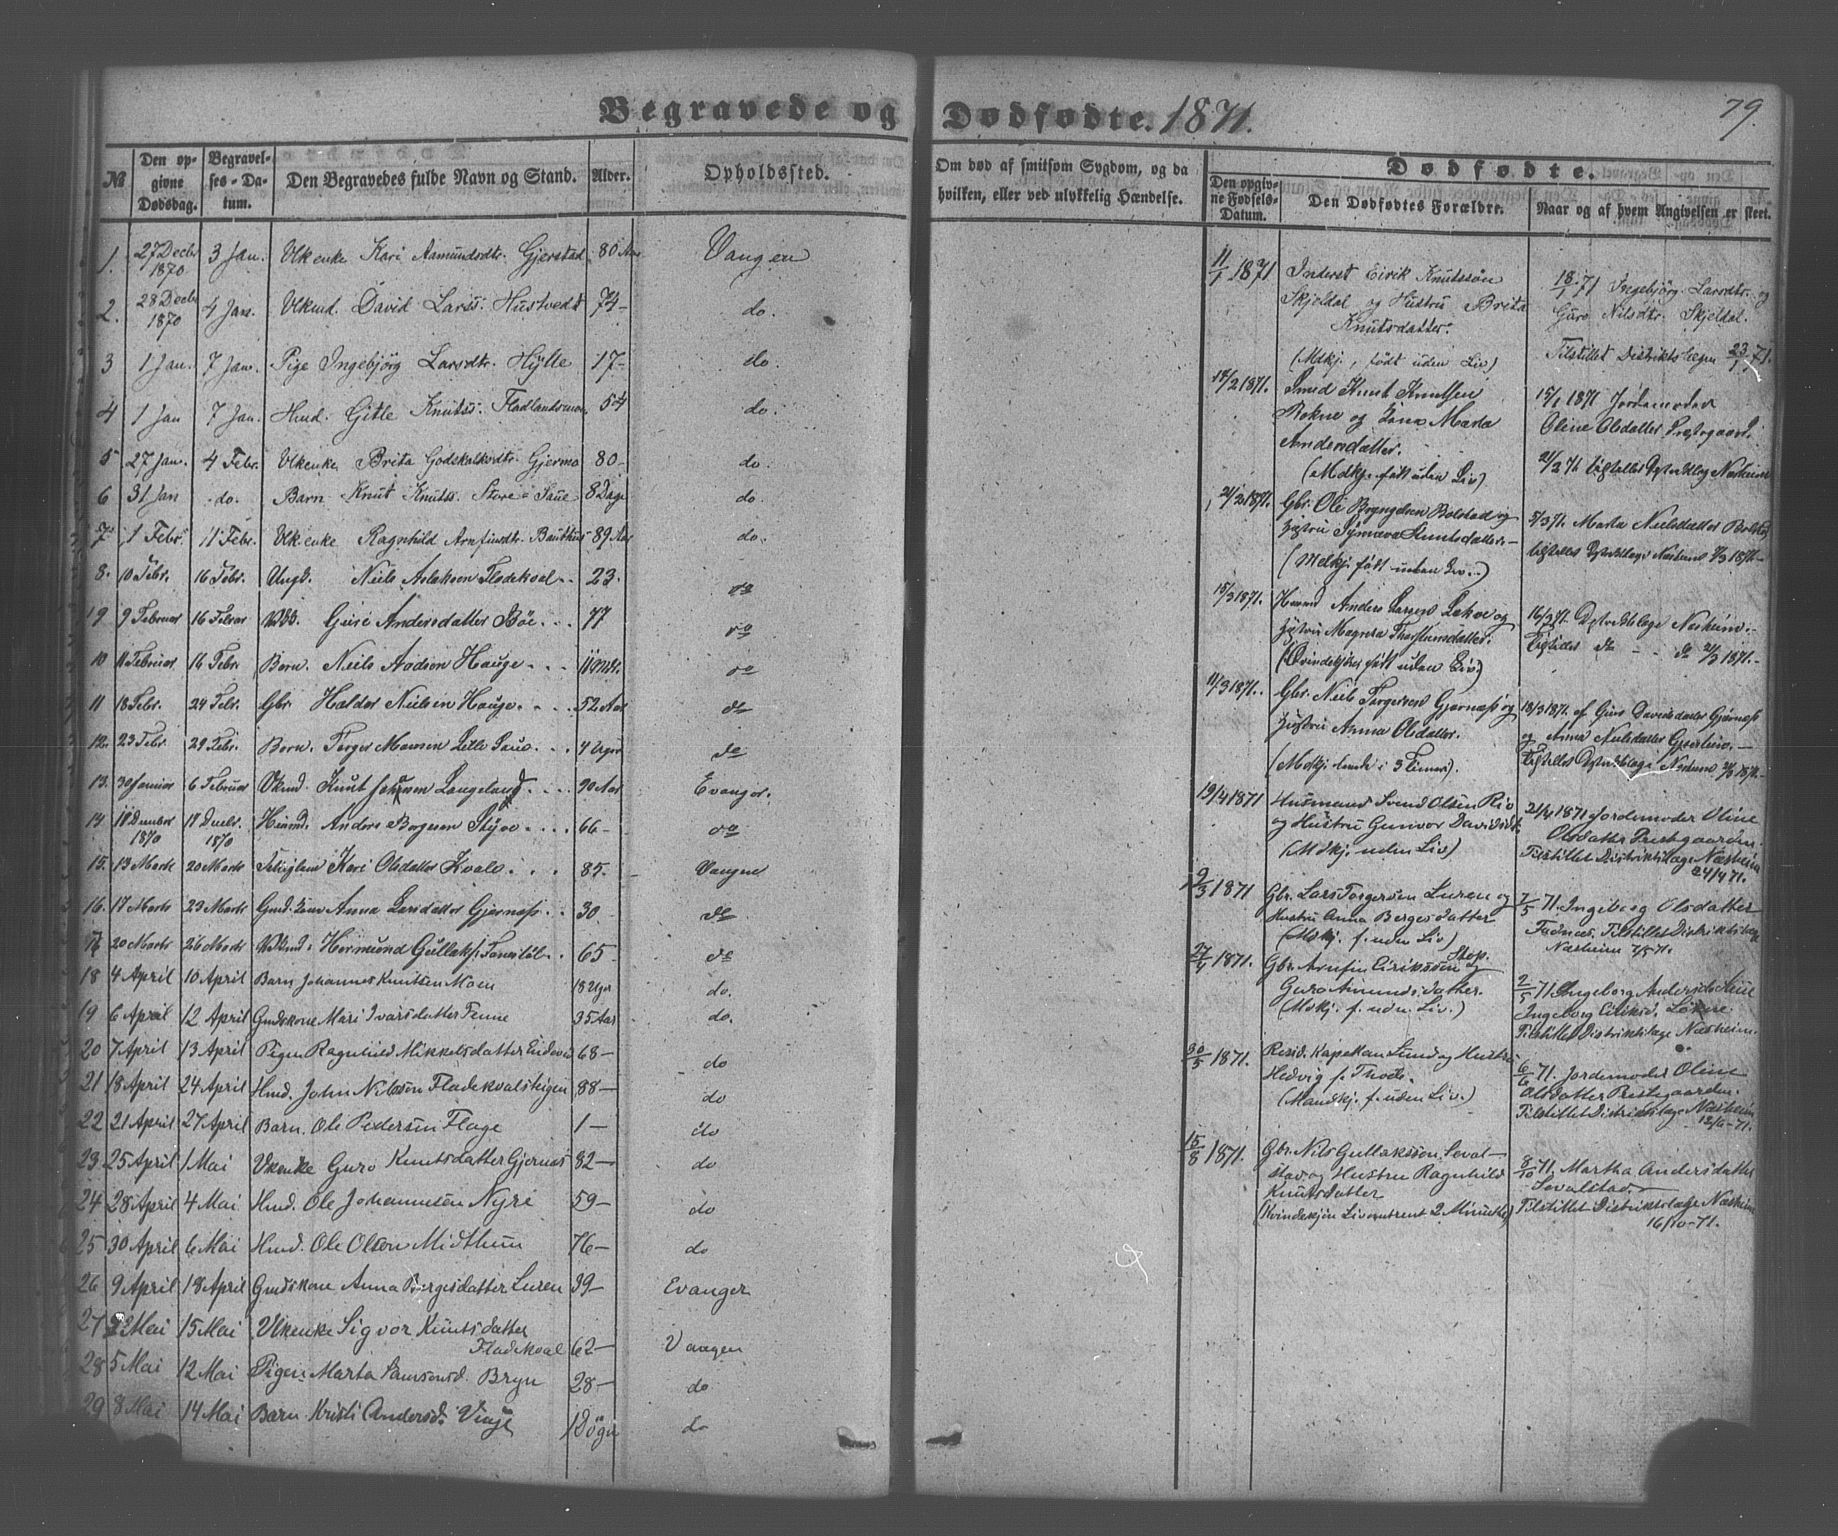 Begravede og Dødfødte. 1871.
79.
№ | Den opgivne Dødsdag. | Begravelses-Datum. | Den Begravedes fulde Navn og Stand. | Alder. | Opholdssted.
1. | 27 Decbr 1870 | 3 Jan. | Ulkenke Kari Aamundsdtr. Gjerstad | 80 Aar | Vangen
2. | 28 Decbr 1870 | 4 Jan. | Ulkmd. David Larss. Hustvedt | 74- | do.
3 | 1 Jan. | 7 Jan. | Pige Ingebjörg Larsdtr. Hylle | 17- | do.
4 | 1 Jan | 7 Jan. | Hmd. Gitle Knutss. | 54 | do.
5 | 27 Jan. | 4 Febr. | Ulkenke Brita Godskalksdtr. Gjermo | 80- | do.
6 | 31 Jan | do. | Barn Knut Knutss. Store-Saue | 8 Dage | do.
7 | 1 Febr. | 11 Febr. | Ulkenke Ragnhild Arnfinsdtr. | 89 Aar | do.
8. | 10 Febr. | 16 Febr. | Ungk. Neils Aslaksen Fladekval | 23. | do
9 | 9 Februar | 16 Febrar | Guri Andersdatter Böe | 77 | do
10 | 11 Februar | 16 Febr. | Barn. Neils Hauge | 11 Mdr. | do
11 | 18 Febr. | 24 Febr. | Gbr. Haldor Nielsen Hauge | 52 Aar | do
12. | 23 Febr. | 29 Febr. | Barn. Torger Monsen Lille Saue | 4 Uger | do
13. | 30 Januar | 6 Februar | Ulkmd. Knut Langeland | 90 Aar | Evanger.
14 | 10 December 1870 | 18 Decbr. 1870 | Huusmd. Anders Borgesen | 66- | do
15. | 13 Marts | 20 Marts | Kari Olsdatter Kvale | 85. | Vangen
16. | 17 Marts | 23 Marts | Anna Larsdatter Gjernæs | 30 | do
17 | 20 Marts | 26 Marts | Hermund Gullaks. | 65 | do
18 | 4 April | 10 April | Barn Johannes Knutsen Moen | 18 Uger | do.
19 | 6 April | 12 April | Gmdskone Mari Ivarsdatter Tenne | 35 Aar | do.
20 | 7 April | 13 April | Pigen Ragnhild Mikkelsdatter | 68- | do
21 | 18 April | 24 April | Hmd. John Nilssön Fladekvalsteigen | 88- | do
22 | 21 April | 27 April | Barn. Ole Pedersen Flage | 1- | do
23. | 25 April | 1 Mai | Ulkenke Guro Knutsdatter Gjernæs | 82- | do
24 | 28 April | 4 Mai | Hmd. Ole Johannesön Nyre | 59- | do
25 | 30 April | 6 Mai | Hmd. Ole Olsen Midthun | 76- | do
26 | 9 April | 18 April | Gmdskone Anna Borgesdatter Luren | 39- | Evanger
27 | Mai | 15 Mai | Ulkenke Sigvor Knutsdatter
Fladekval | 62- | Vangen
28 | 5 Mai | 12 Mai | Pigen Marta Samsonsd. Bryn | 28- | do
29 | 8 Mai | 14 Mai | Barn Kristi Andersd. Vinje | 1 Dögn | do
Om død af smitsom Sygdom, og da hvilken, eller ved ulykkelig Hændelse.
Dødfødte.
Den opgivne Fødsels-Datum. | Den Dødfødtes Forældre. | Naar og af hvem Angivelsen er skeet.
11/1 1871 | Inderst Eirik Knutssön
Skjeldal og Hustru Brita
Knutsdatter.
(Mdkj., født uden Liv)
18/1 71 Ingebjörg Larsdtr. og
Guro Nilsdtr. Skjeldal.
Tilstillet Distriktslægen 23/1 71.
14/2 1871. | Smed Knut Knutsen
Rokne og Kone Marta
Andersdatter.
(Mdkj. født uden Liv)
15/1 1871 Jordemoder
Oline Olsdatter Prestegaard.
21/2 71 Næsheim
21/2 1871. | Gbr. Ole Bryngelsen Bolstad og
Hustru Synneva Knutsdatter.
(Mdkj. født uden Liv.)
5/3 71. Marta Nielsdatter Bolstad
15/3 1871. | Huusmd Anders Larsen og
Hustru Magnela Thorsteinsdatter.
(Qvindekjön født uden Liv)
16/3 71. Næsheim.
21/3 1871.
11/3 1871. | Gbr. Niels Torgersen Gjernæs og
Hustru Anna Olsdatter.
(Mdkj. levede i 3 Timer).
18/3 1871. af Guro Davidsdatter Gjernæs
og Anna Nielsdatter
19/4 1871 | Husmand Svend Olsen Riv
og Hustru Gunvor Davidsdt.
(Mdkj. uden Liv)
21/4 1871 Jordemoder Oline
Olsdatter Prestgaarden.
Tilstillet Distriktslæge Næsheim
24/4 71.
9/3 1871 | Gbr. Lars Torgersen Luren og
Hustru Anna Bergesdatter
(Mdkj. f. uden Liv)
7/5 71. Ingeborg Olsdatter
Fadnæs. Tilstillet Distriktslæge
Næsheim 7/5 71.
27/4 1871. | Gbr. Arnfin Eirikssön og
Guro Amundsdatter.
(Mdkj. f. uden Liv.)
2/5 71. Ingeborg Andersdtr
Ingeborg Eiriksd. Lökne.
Tilstillet Distriktslæge Næsheim.
30/5 1871. | Resid. Kapellan Lund og Hustru
Hedvig f. Thode.
(Mandkj. f. uden Liv.)
6/6 71. Jordemoder Oline
Olsdatter Prestegaarden.
Tilstillet Distriktslæge Næsheim
12/6-71.
15/8 1871. | Gbr. Nils Gullakssön Seval-
stad og Hustru Ragnhild
Knutsdatter
(Kvindekjön Liv omtrent 2 Minutter)
8/10 71. Martha Andersdatter
Sevalstad.
Tilstillet Distriktslæge Næsheim
16/10-71.